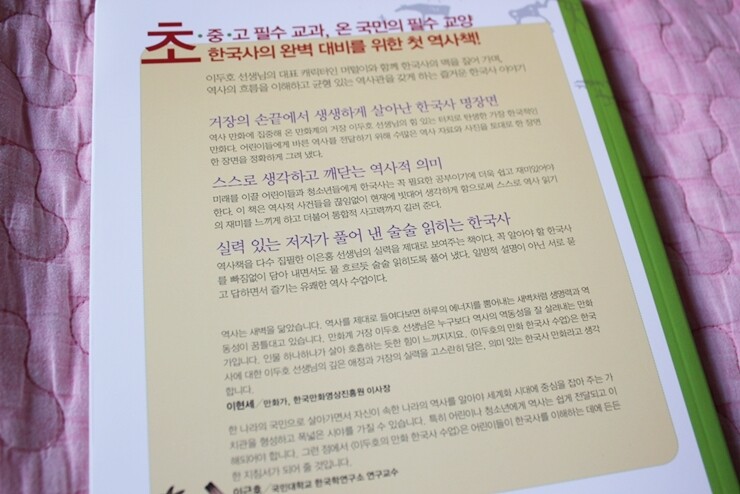 초·중·고 필수 교과, 온 국민의 필수 교양
한국사의 완벽 대비를 위한 첫 역사책!
이두호 선생님의 대표 캐릭터인 머털이와 함께 한국사의 맥을 짚어 가며,
역사의 흐름을 이해하고 균형 있는 역사관을 갖게 하는 즐거운 한국사 이야기
거장의 손끝에서 생생하게 살아난 한국사 명장면
역사 만화에 집중해 온 만화계의 거장 이두호 선생님의 힘 있는 터치로 탄생한 가장 한국적인
만화다. 어린이들에게 바른 역사를 전달하기 위해 수많은 역사 자료와 사진을 토대로 한 장면
한 장면을 정확하게 그려 냈다.
스스로 생각하고 깨닫는 역사적 의미
미래를 이끌 어린이들과 청소년들에게 한국사는 꼭 필요한 공부이기에 더욱 쉽고 재미있어야
한다. 이 책은 역사적 사건들을 끊임없이 현재에 빗대어 생각하게 함으로써 스스로 역사 읽기
의 재미를 느끼게 하고 더불어 통합적 사고력까지 길러 준다.
실력 있는 저자가 풀어 낸 술술 읽히는 한국사
역사책을 다수 집필한 이은홍 선생님의 실력을 제대로 보여주는 책이다. 꼭 알아야 할 한국사
를 빠짐없이 담아 내면서도 물 흐르듯 술술 읽히도록 풀어 냈다. 일방적 설명이 아닌 서로 묻
고 답하면서 즐기는 유쾌한 역사 수업이다.
역사는 새벽을 닮았습니다. 역사를 제대로 들여다보면 하루의 에너지를 뿜어내는 새벽처럼 생명력과 역
동성이 꿈틀대고 있습니다. 만화계 거장 이두호 선생님은 누구보다 역사의 역동성을 잘 살려내는 만화
가입니다. 인물 하나하나가 살아 호흡하는 듯한 힘이 느껴지지요. 〈이두호의 만화 한국사 수업〉은 한국
사에 대한 이두호 선생님의 깊은 애정과 거장의 실력을 고스란히 담은, 의미 있는 한국사 만화라고 생각
합니다.
이현세 / 만화가, 한국만화영상진흥원 이사장
한 나라의 국민으로 살아가면서 자신이 속한 나라의 역사를 알아야 세계화 시대에 중심을 잡아 주는 가
치관을 형성하고 폭넓은 시야를 가질 수 있습니다. 특히 어린이나 청소년에게 역사는 쉽게 전달되고 이
해되어야 합니다. 그런 점에서 〈이두호의 만화 한국사 수업〉은 어린이들이 한국사를 이해하는 데에 든든
한 지침서가 되어 줄 것입니다.
이근호 / 국민대학교 한국학연구소 연구교수